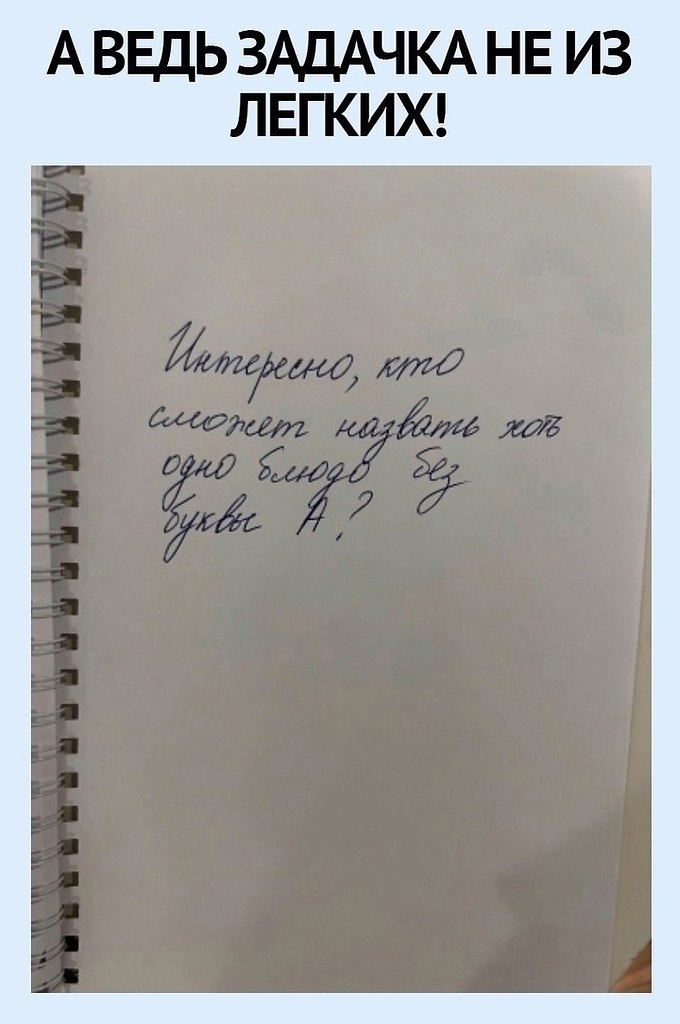 А ВЕДЬ ЗАДАЧКА НЕ ИЗ
ЛЕГКИХ!
Интересно, кто
сможет назвать хоть
одно блюдо без
буквы А?